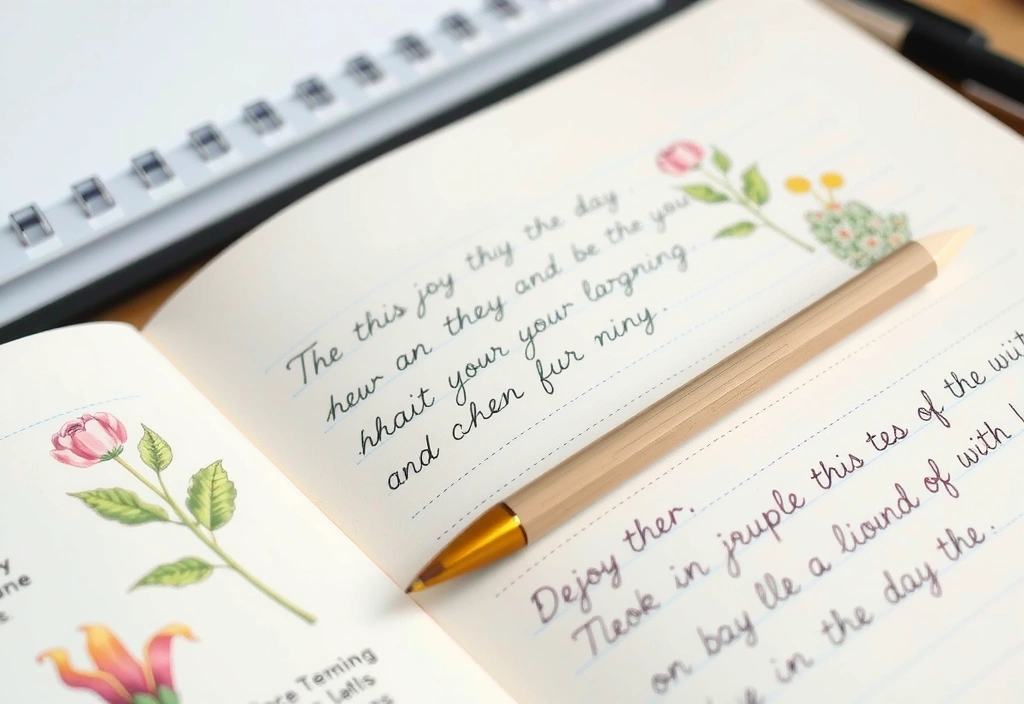 The this joy thiy the day
heur an they and be the you
hhait your your largning
and chen fur niny.
Dejoy ther.
Tleok in jruple this tes of the wiit
on bay lle a liound of with
in the day the.
y
une
t
Teming
Latls